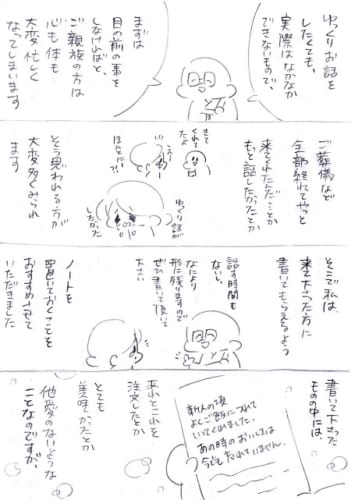 ゆっくりお話を
したくても、
実際はなかなか
できないもので、
まずは
目の前の事を
しなければと、
ご親族の方は
心も体も
大変忙しく
なってしまいます
ご葬儀など
全部終わってやっと
来てくれたんだ…とか
もっと話したかったとか
きて
くれて
たよ
えっ!
ほんとに?!
ゆっくり話が
したかった
そう思われる方が
大変多くみられ
ます
そこで私は、
来て下さった方に
書いてもらえるよう
話す時間も
ないし、
なにより
形に残りますので
ぜひ書いて頂いて
下さい
ノートを
置いておくことを
おすすめさせて
いただきました
書いて下さった
ものの中には、
新人の頃
よくご飯につれて
いってくれました。
あの時のおいしさは
今でも忘れていません。
あれとこれを
注文したとか
とても
美味かったとか
他愛のないような
ことなのですが、